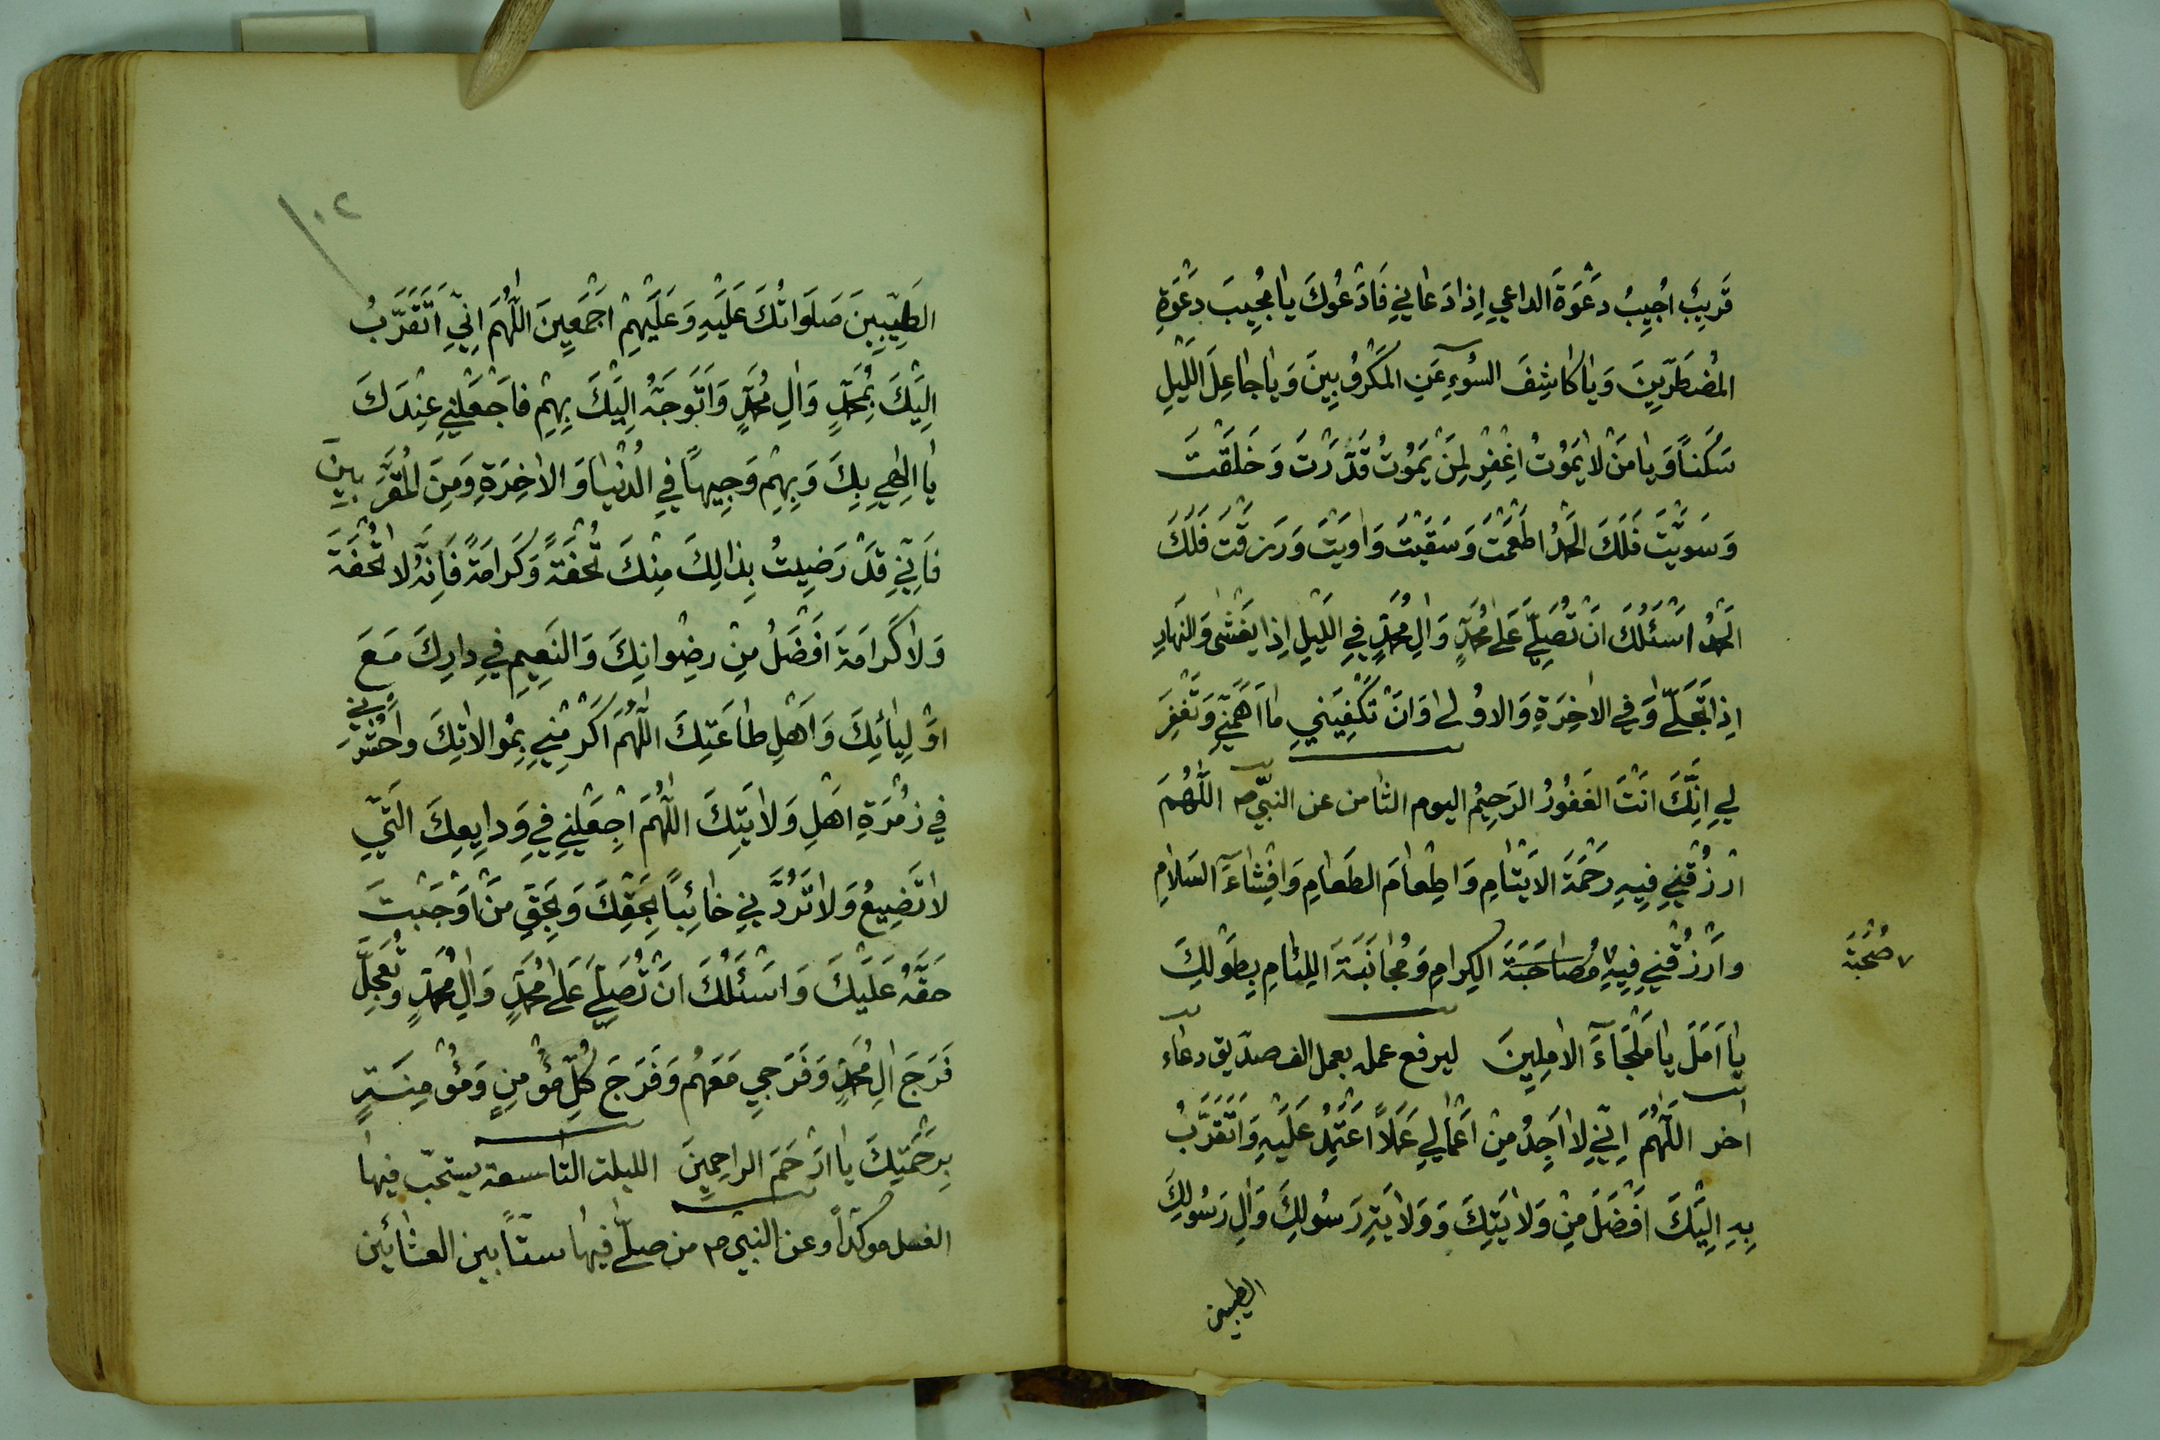 قَرِيبٌ اُجِيبُ دَعْوَةَ الداعي اِذا دَعانِي فَاَدْعُوكَ يا مُجِيبَ دَعْوَةِ
المُضطَرّينَ وَيا كاشِفَ السُوءِ عَنِ المَكْرُوبينَ وَيا جاعِلَ اللَيْلِ
سَكَناً وَيا مَنْ لا يَمُوتُ اِغْفِرْ لِمَنْ يَمُوتُ قَدَّرْتَ وَخَلَقْتَ
وَسَوَّيْتَ فَلَكَ الحَمْدُ اَطْعَمْتَ وَسَقَيْتَ وَاوَيْتَ وَرَزَقْتَ فَلَكَ
الحَمْدُ اَسْئَلُكَ اَنْ تُصَلِّيَ عَلى مُحَمَّدٍ وَالِ مُحَمَّدٍ فِي اللَيْلِ اِذا يَغْشى وَالنَهارِ
اِذا تَجَلّى وَفِي الاخِرَةِ وَالاوُلى وَاَنْ تَكْفِيَنِي ما اَهَمَّنِي وَتَغْفِرَ
لِي اِنَّكَ اَنْتَ الغَفُورُ الرَحِيمُ اليوم الثامن عن النبيّ ص اللّهُمَ
ارْزُقْنِي فِيهِ رَحْمَةَ الايْتامِ وَاِطْعامَ الطَعامِ وَاِفْشاءَ السَلامِ
وَارْزُقْنِي فِيهِ مُصاحَبَةَ الكِرامِ وَمُجانَبَةَ اللِئامِ بِطَوْلِكَ
صُحْبَةَ
يا اَمَلَ يا مَلْجَاءَ الامِلِينَ ليرفع عمله بعمل الف صدّيق دعاء
اخر اللّهُمَ اِنِّي لا اَجِدُ مِنْ اَعْمالِي عَمَلاً اَعْتَمِدُ عَلَيْهِ وَاَتَقَرَّبُ
بِهِ اِلَيْكَ اَفْضَلَ مِنْ وَلايَتِكَ وَوَلايَةِ رَسُولِكَ وَالِ رَسُولِكَ
الطيبين
١٠٢
الطَيِّبِينَ صَلَواتُكَ عَلَيْهِ وَعَلَيْهِمْ اَجْمَعِينَ اللّهُمَ اِنِّي اَتَقَرَّبُ
اِلَيْكَ بِمُحَمَّدٍ وَالِ مُحَمَّدٍ وَاَتَوَجَّهُ اِلَيْكَ بِهِمْ فاَجْعَلْنِي عِنْدَكَ
يا اِلهِي بِكَ وَبِهِمْ وَجِيهاً فِي الدُنْيا وَالاخِرَةِ وَمِنَ المُقَرَّبِينَ
فَاِنّي قَدْ رَضِيتُ بِذالِكَ مِنْكَ تُحْفَةً وَكَرامَةً فَاِنَّهُ لا تُحْفَةَ
وَلا كَرامَةَ اَفْضَلُ مِنْ رِضْوانِكَ وَالنَعِيمِ فِي دارِكَ مَعَ
اَوْلِيائِكَ وَاَهْلِ طاعَتِكَ اللّهُمَ اَكْرِمْنِي بِمُوالاتِكَ واحْشُرْنِي
فِي زُمْرَةِ اَهْلِ وَلايَتِكَ اللّهُمَ اجْعَلْنِي فِي وَدايِعِكَ الَّتِي
لا تَضِيعُ وَلا تَرُدَّنِي خائِباً بِحَقِّكَ وَبِحَقِّ مَنْ اَوْجَبْتَ
حَقَّهُ عَلَيْكَ وَاَسْئَلُكَ اَنْ تُصَلِّيَ عَلى مُحَمَّدٍ وَالِ مُحَمَّدٍ وَتُعَجِّلَ
فَرَجَ الِ مُحَمَّدٍ وَفَرَجِي مَعَهُم وَفَرَجَ كُلِّ مُؤْمِنٍ وَمُؤْمِنَةٍ
بِرَحْمَتِكَ يا اَرْحَمَ الراحِمِينَ الليلة التاسعة يستحبّ فيها
الغسل موكّداً وعن النبيّ ص من صلّى فيها ستاً بين العشائين